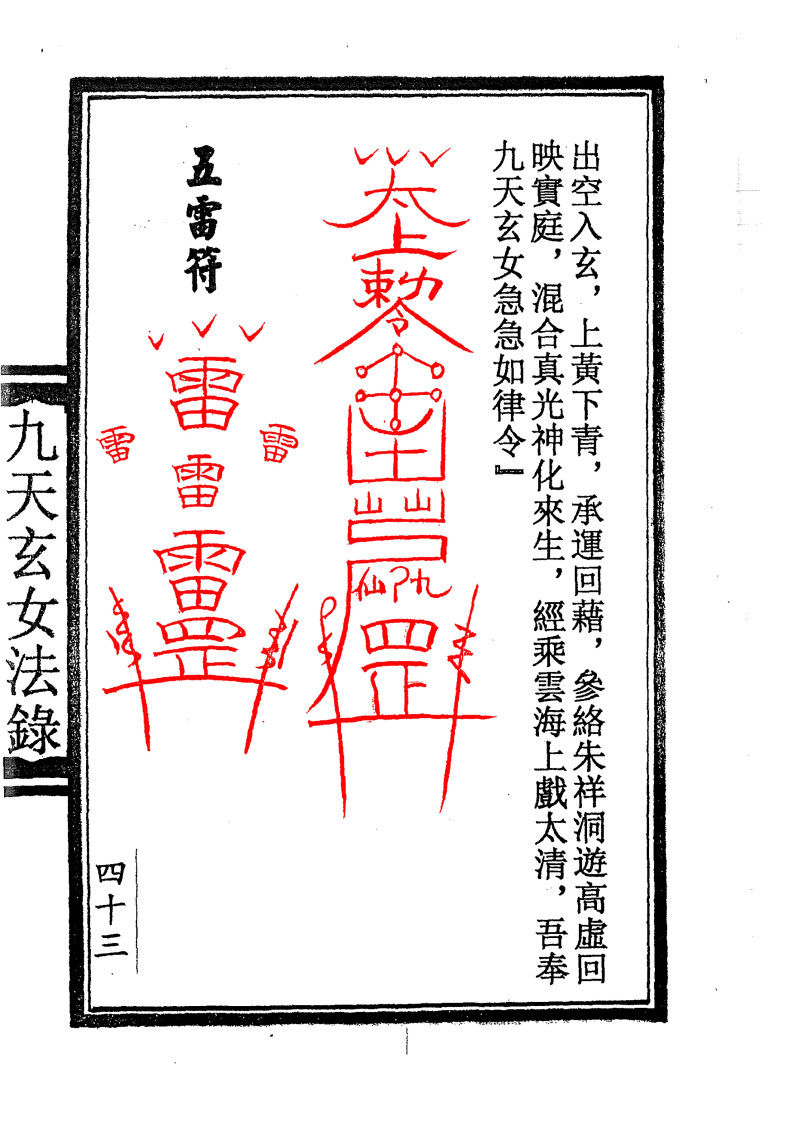 出空入玄，上黃下青，承運回藉，參絡朱祥洞遊高虛回
映實庭，混合真光神化來生，經乘雲海上戲太清，吾奉
九天玄女急急如律令』
太上
敕令
山山
仙
九
罡
五雷符
雷
雷
雷
雷
雷
罡
九天玄女法錄
四十三